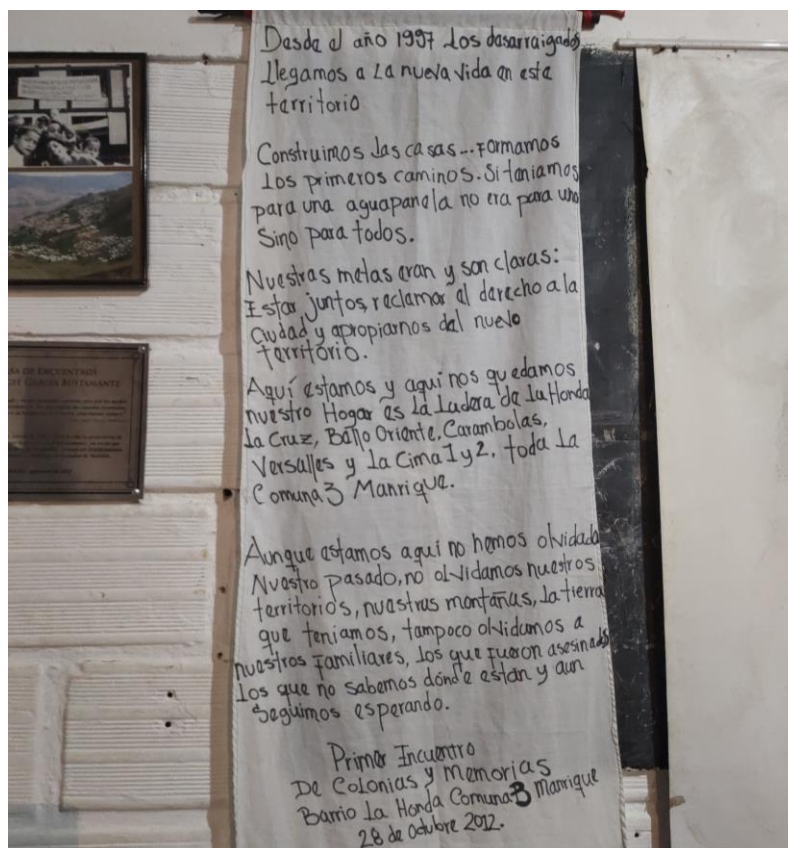 Desde el año 1997 Los desarraigados
llegamos a La nueva vida en este
territorio
Construimos las casas... Formamos
Los primeros caminos. Si teniamos
para una aguapanela no era para uno
Sino para todos.
Nuestras metas eran y son claras:
Estar juntos, reclamar el derecho a la
Ciudad y apropiarnos del nuevo
territorio.
Aquí estamos y aqui nos quedamos
nuestro Hogar es La Ladera de La Honda
La Cruz, Bello Oriente, Carambolas,
Versalles y La Cima 1 y 2, toda La
Comuna 3 Manrique.
Aunque estamos aqui no hemos olvidado
Nuestro pasado, no olvidamos nuestros
territorios, nuestras montañas, la tierra
que teniamos, tampoco olvidamos a
nuestros Familiares, Los que Fueron asesinados
Los que no sabemos dónde están y aun
Seguimos esperando.
Primer Encuentro
De Colonias y Memorias
Barrio La Honda Comuna 3 Manrique
28 de Octubre 2012.
DE ENCUENTROS
GARCÍA BUSTAMANTE